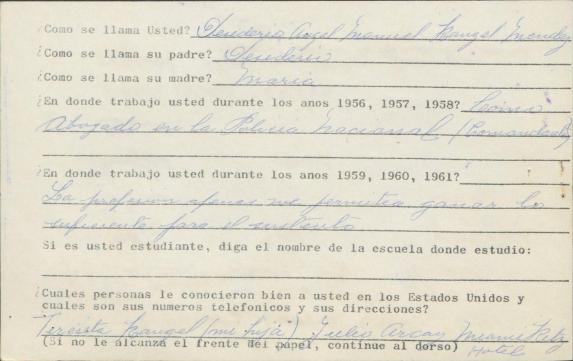 ¿Como se llama Usted? Desiderio Angel Manuel Rangel Mendez
¿Como se llama su padre? Desiderio
¿Como se llama su madre? Maria
¿En donde trabajo usted durante los anos 1956, 1957, 1958? Como
Abogado en la Policia Nacional (Comandante)
¿En donde trabajo usted durante los anos 1959, 1960, 1961?
La profesion apenas me permitia ganar lo
suficiente para el sustento
Si es usted estudiante, diga el nombre de la escuela donde estudio:
¿Cuales personas le conocieron bien a usted en los Estados Unidos y
cuales son sus numeros telefonicos y sus direcciones?
Teresita Rangel (mi hija) Julio Arcay Miami Ritz
(Si no le alcanza el frente del papel, continue al dorso) Hotel